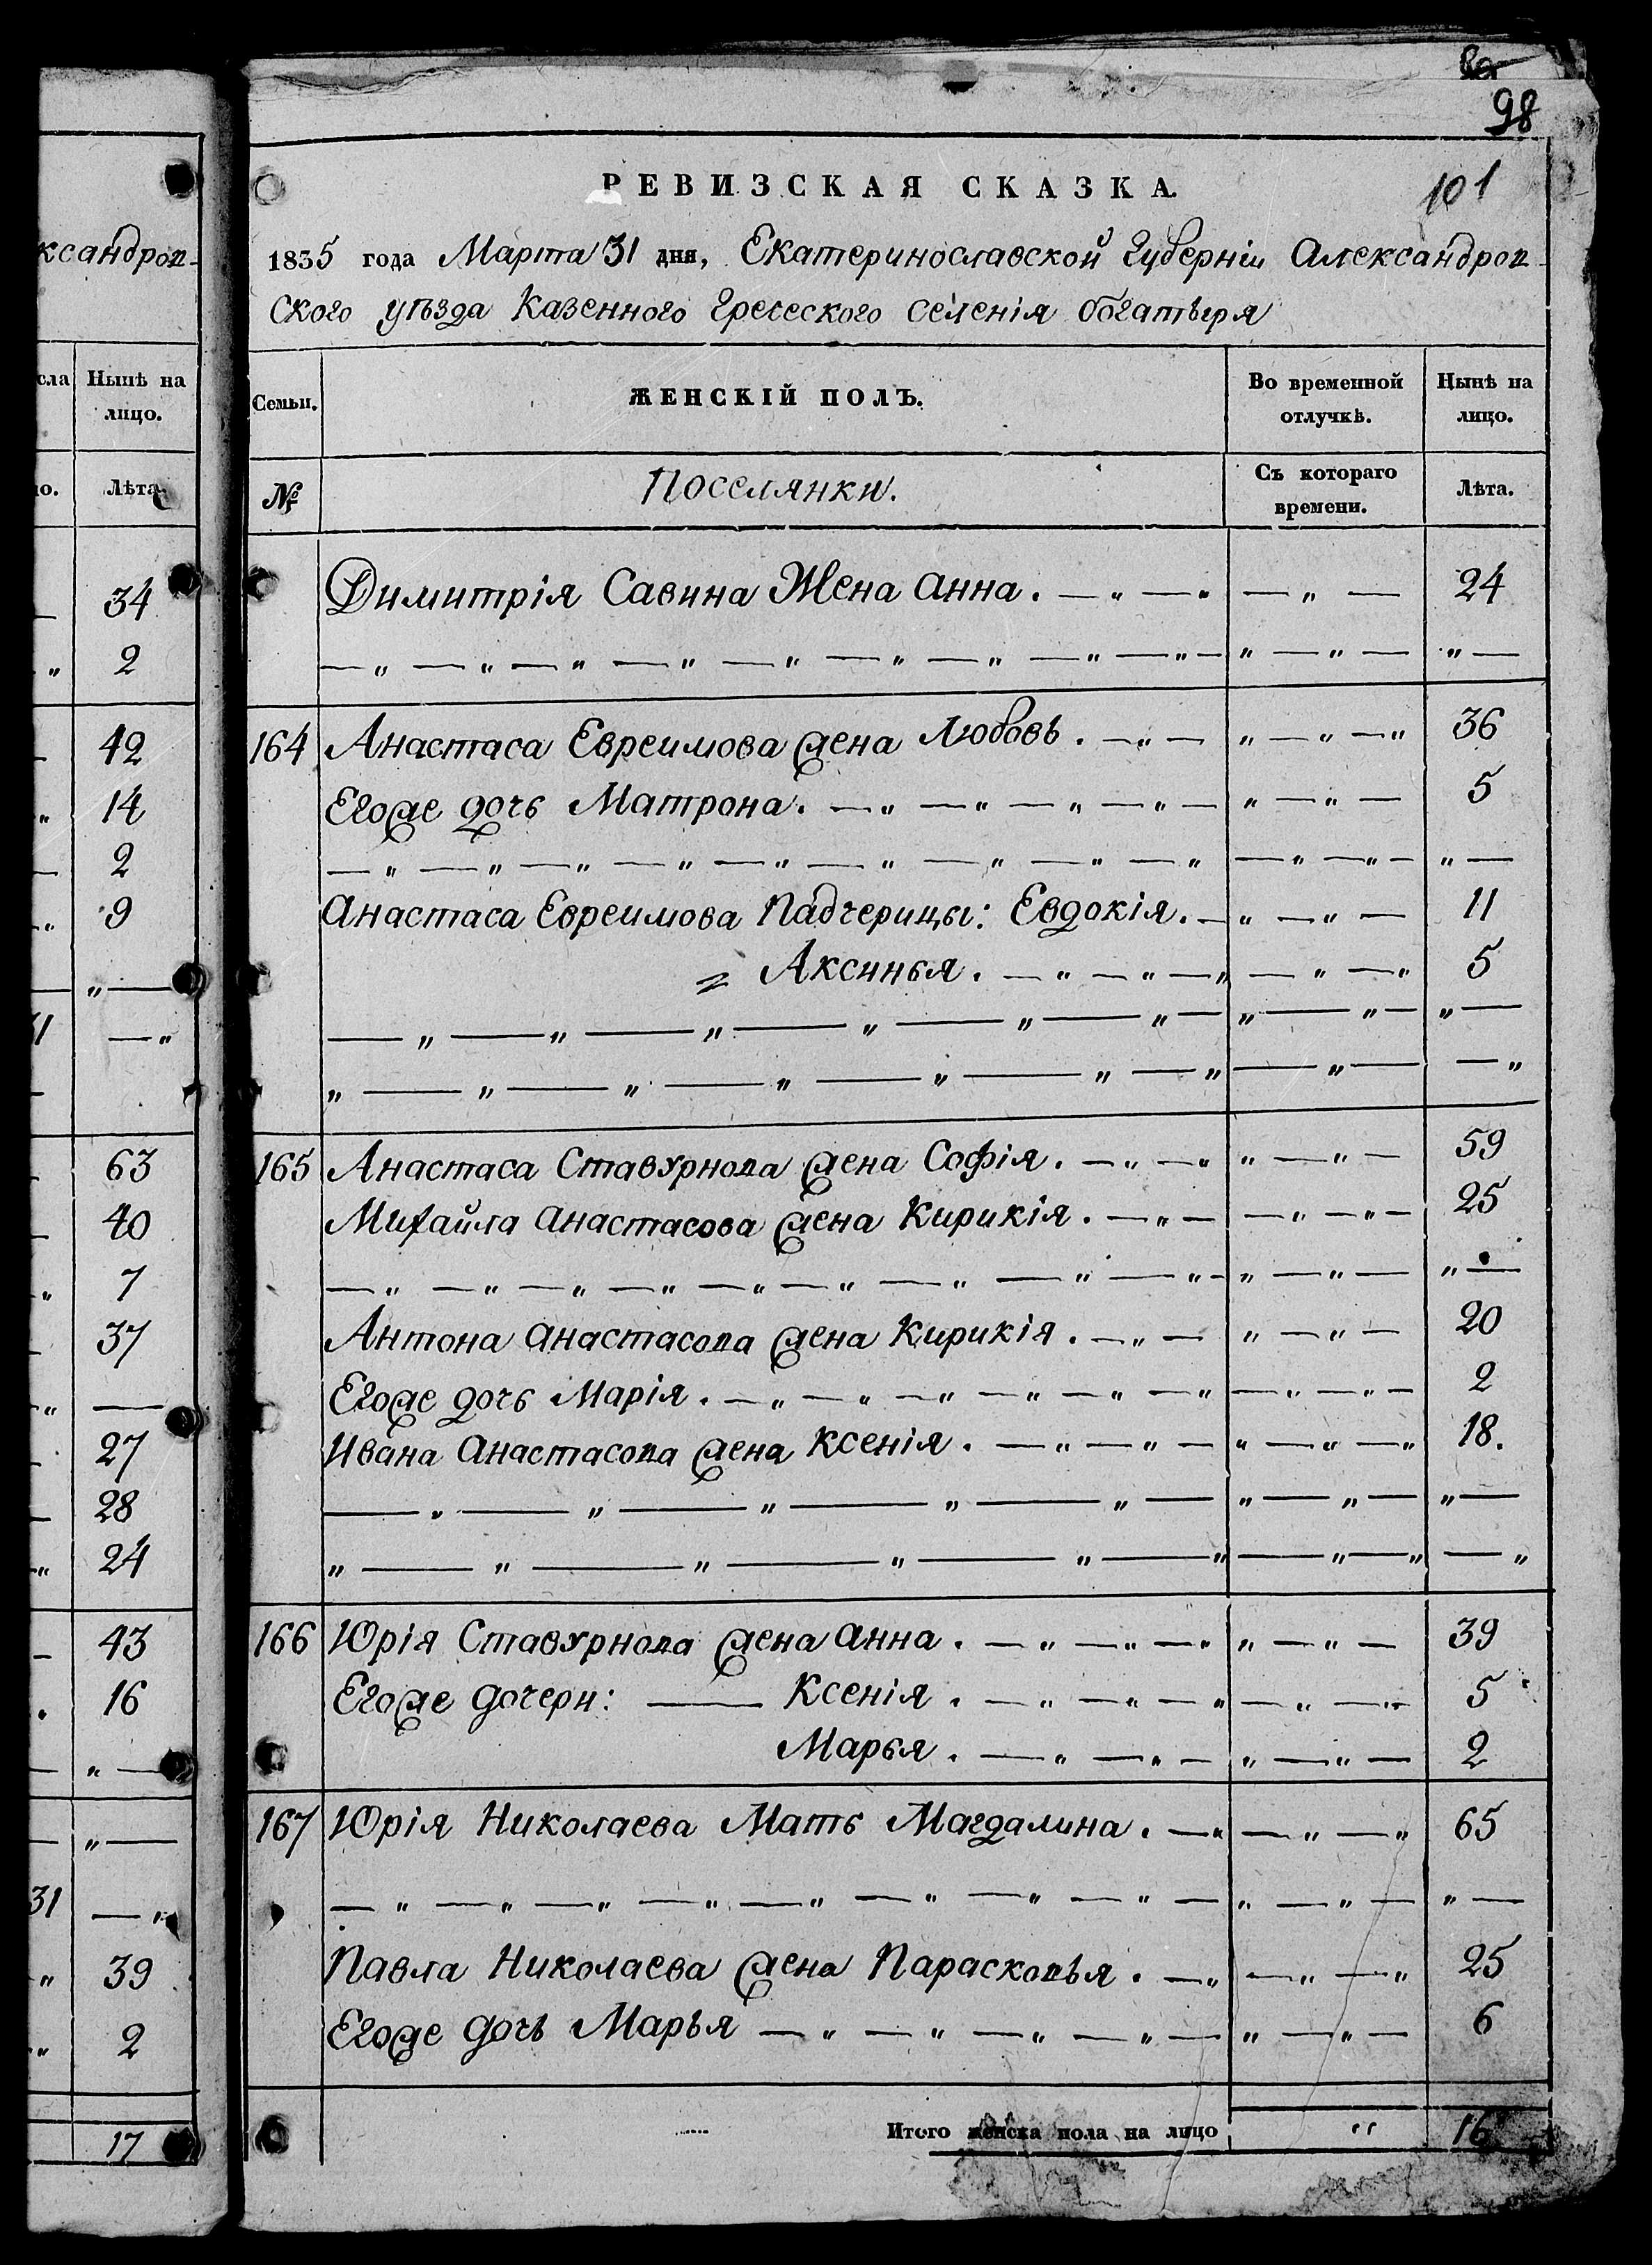 98
101
РЕВИЗСКАЯ СКАЗКА.
1835 года Марта 31 дня, Екатеринославской Губерніи Александров-
ского уѣзда Казенного Греческого селенія богатыря
Семьи. ЖЕНСКІЙ ПОЛЪ. Во временной отлучкѣ. Нынѣ на лицо.
№ Поселянки. Съ котораго времени. Лѣта.
Димитрія Савина Жена Анна. — „ — „ — „ — 24
— „ — „ — „ — „ — „ — „ — „ — „ — „ — „ — „ — „ —
164 Анастаса Евреимова жена Любовь. — „ — „ — „ — „ 36
Егоже дочь Матрона. — „ — „ — „ — „ — „ — „ — 5
— „ — „ — „ — „ — „ — „ — „ — „ — „ — „ — „ — „ —
Анастаса Евреимова Падчерицы: Евдокія. — „ — „ — 11
„ Аксинья. — „ — „ — „ — „ — „ 5
— „ — „ — „ — „ — „ — „ — „ — „ — „ —
„ — „ — „ — „ — „ — „ — „ — „ — — „
165 Анастаса Ставурнова жена Софія. — „ — „ „ — „ — 59
Михайла Анастасова жена Кирикія. — „ — — „ — „ — 25
— „ — „ — „ — „ — „ — „ — „ — „ — „ — „ — „ — „ —
Антона Анастасова жена Кирикія. — „ — „ — „ — 20
Егоже дочь Марія. — „ — „ — „ — „ — „ — „ — „ — „ — 2
Ивана Анастасова жена Ксенія. — „ — „ — „ — „ — „ 18.
— „ — „ — „ — „ — „ — „ — „ — „ —
„ — „ — „ — „ — „ — „ — „ — „ — „
166 Юрія Ставурнова жена Анна. — „ — „ — „ „ — „ — 39
Егоже дочери: — Ксенія. — „ — „ — „ — „ — „ 5
Марья. — „ — „ — „ — „ — 2
167 Юрія Николаева Мать Магдалина. — „ — „ — „ 65
— „ — „ — „ — „ — „ — „ — „ — „ — „ — „ — „ —
Павла Николаева жена Парасковья. — „ — „ — „ 25
Егоже дочь Марья — „ — „ — „ — „ — „ — „ — 6
Итого женска пола на лицо „ 16
ксандров-
сла Нынѣ на лицо.
ло. Лѣта.
34
2
42
14
2
9
63
40
7
37
27
28
24
43
16
31
39
2
17